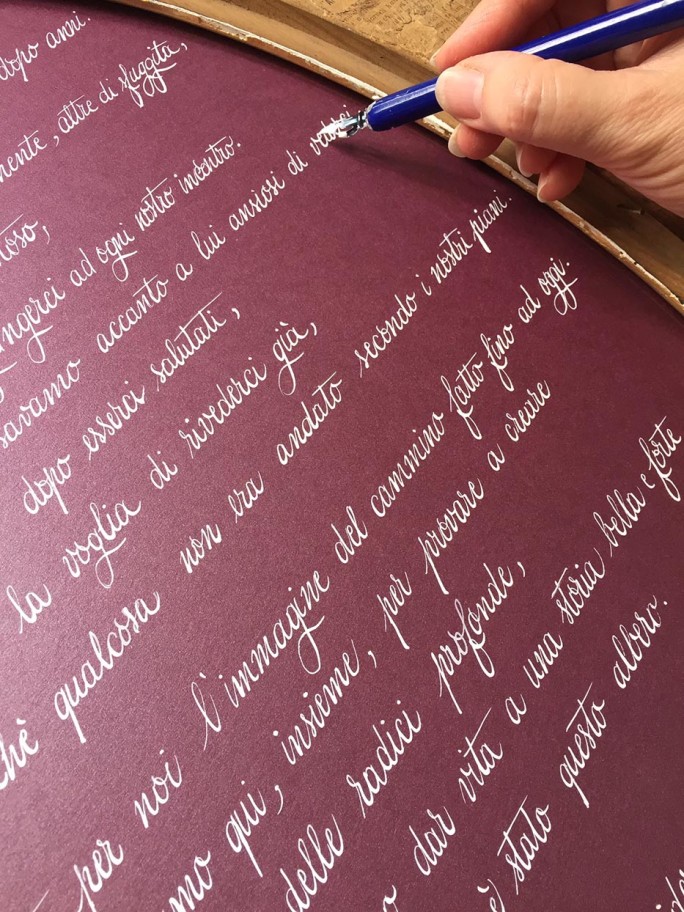 dopo anni.
mente, altre di sfuggita,
toso,
ngerci ad ogni nostro incontro.
savamo accanto a lui ansiosi di
dopo esserci salutati,
la voglia di rivederci già,
chè qualcosa non era andato secondo i nostri piani.
per noi l'immagine del cammino fatto fino ad oggi.
mo qui, insieme, per provare a creare
delle radici profonde,
o dar vita a una storia bella e forte
è stato questo albero.